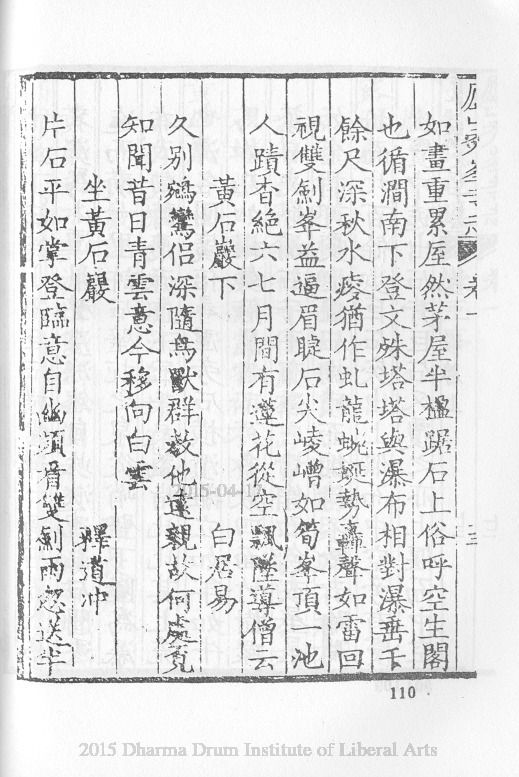 如畫重累垕然茅屋半楹踞石上俗呼空生閣
也循澗南下登文殊塔塔與瀑布相對瀑垂千
餘尺深秋水瘦猶作虬龍蜿蜒勢轟聲如雷回
視雙劍峯益逼眉睫石尖崚嶒如筍峯頂一池
人蹟杳絕六七月間有蓮花從空飄墜導僧云
黃石巖下 白居易
久别鵷鸞侶深隨鳥獸群教他遠親故何處覓
知聞昔日青雲意今移向白雲
坐黃石巖 釋道冲
片石平如掌登臨意自幽頭看雙劍雨忽送半
110
2015-04-1
2015 Dharma Drum Institute of Liberal Arts